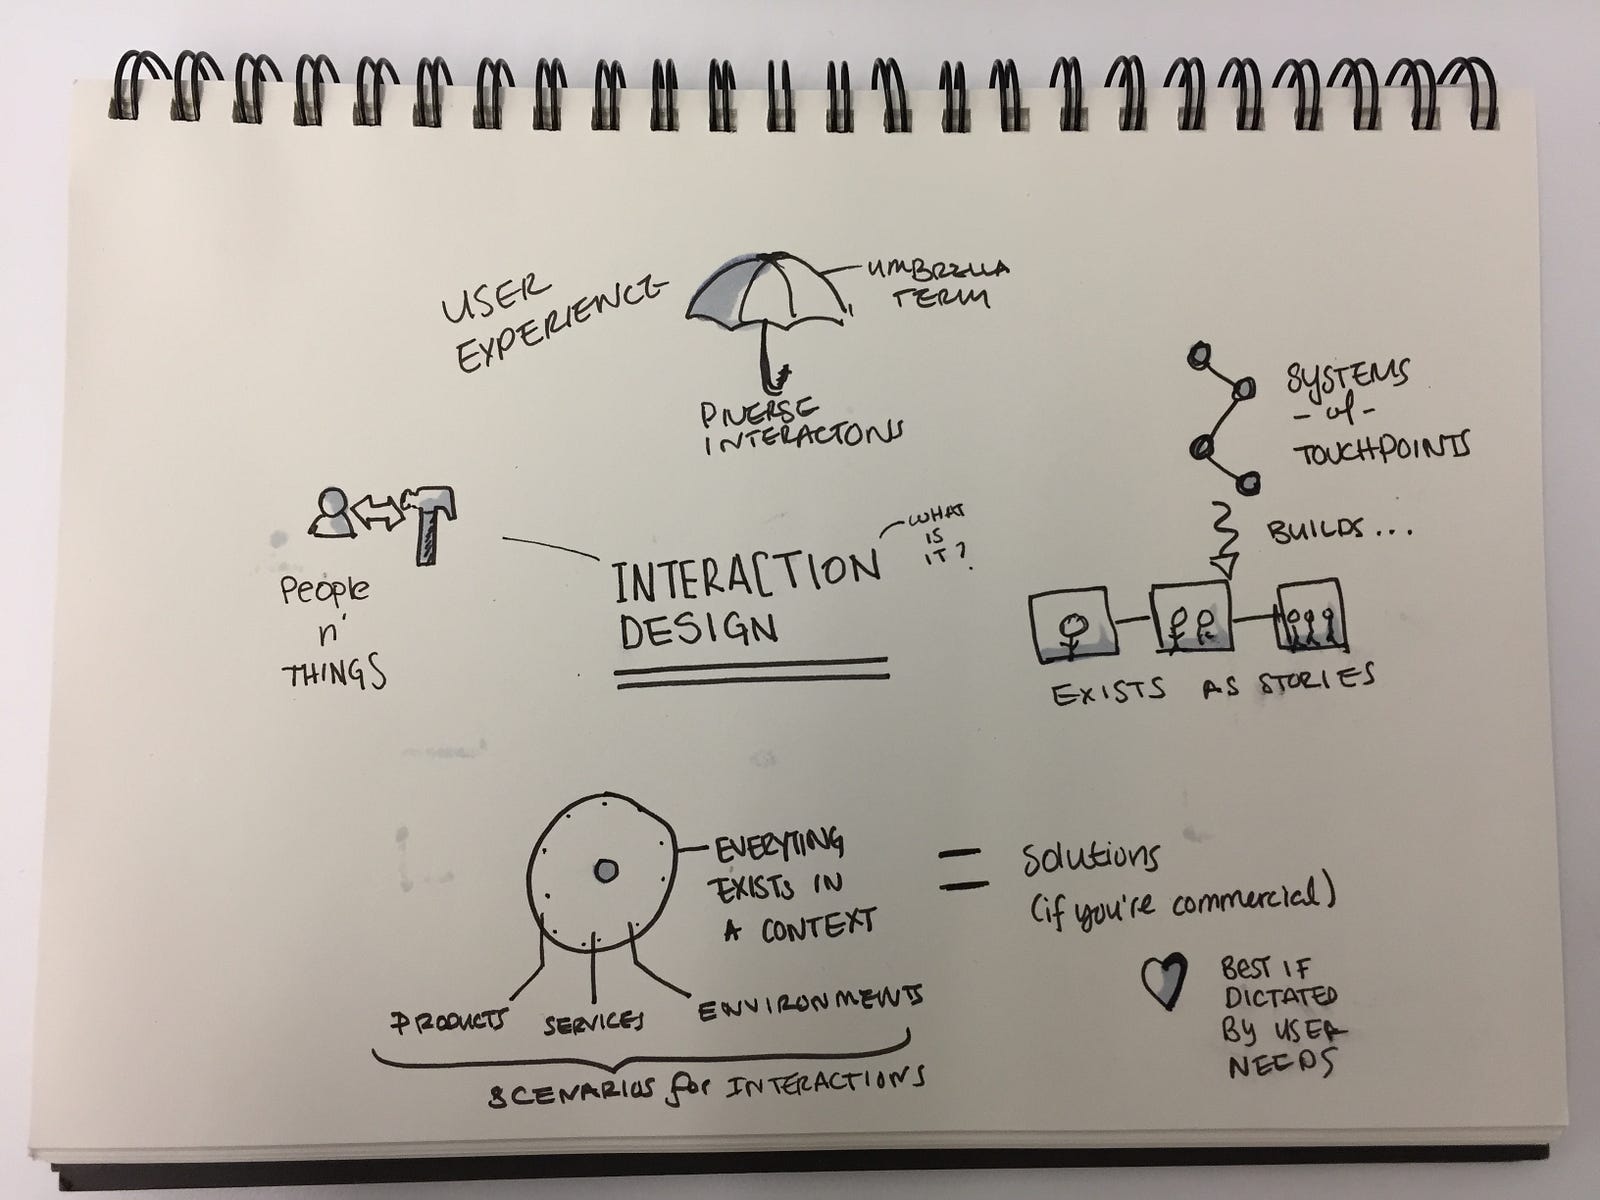 USER
EXPERIENCE
UMBRELLA
TERM
DIVERSE
INTERACTONS
SYSTEMS
- of -
TOUCHPOINTS
BUILDS...
EXISTS AS STORIES
People
n'
THINGS
INTERACTION
DESIGN
WHAT
IS
IT?
EVERYTING
EXISTS IN
A CONTEXT
PRODUCTS
SERVICES
ENVIRONMENTS
SCENARIOS for INTERACTIONS
=
Solutions
(if you're commercial)
BEST IF
DICTATED
BY USER
NEEDS